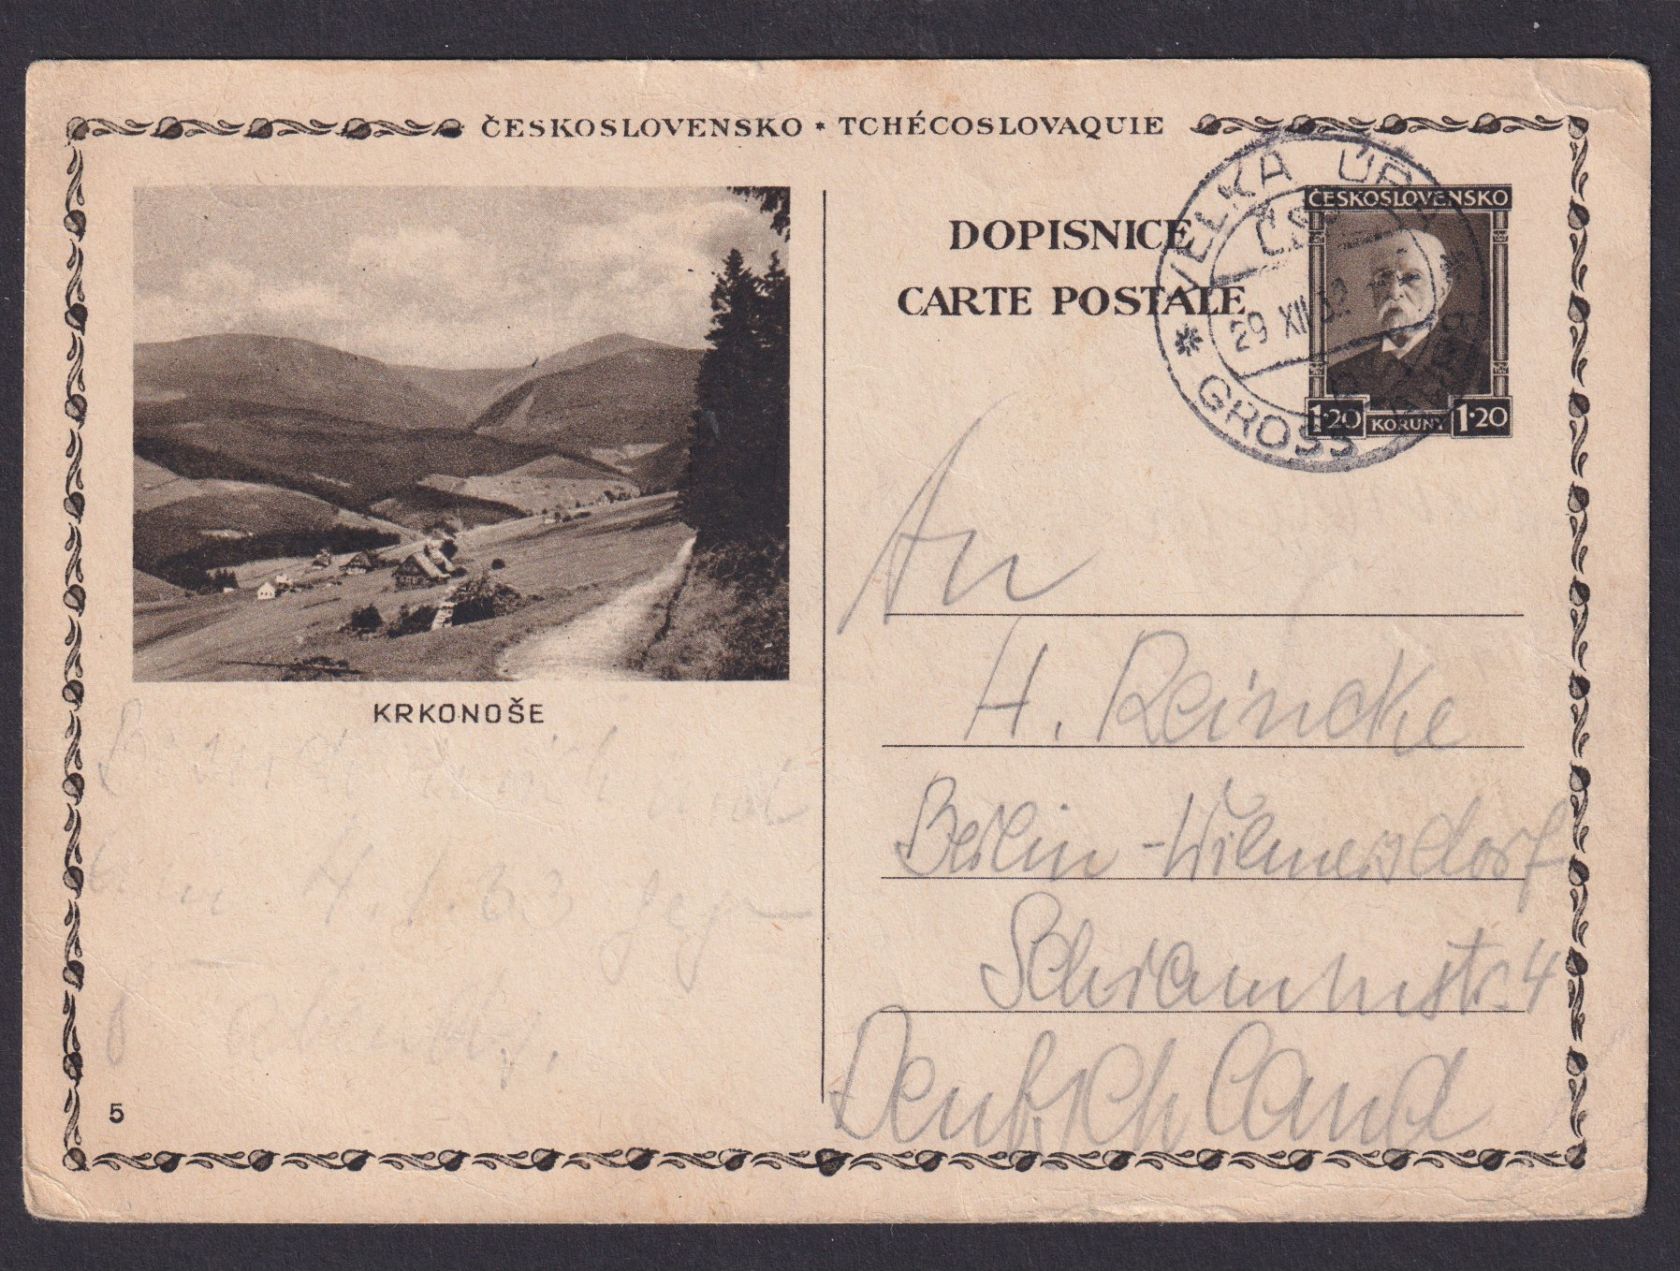 ČESKOSLOVENSKO • TCHÉCOSLOVAQUIE
DOPISNICE
CARTE POSTALE
ČESKOSLOVENSKO
1·20 KORUNY 1·20
VELKA ÚP
ČS
29 XII 32
GROSS
KRKONOŠE
An
H. Reincke
Berlin-Wilmersdorf
Schrammstr. 4
Deutschland
mich
4.1.33
5